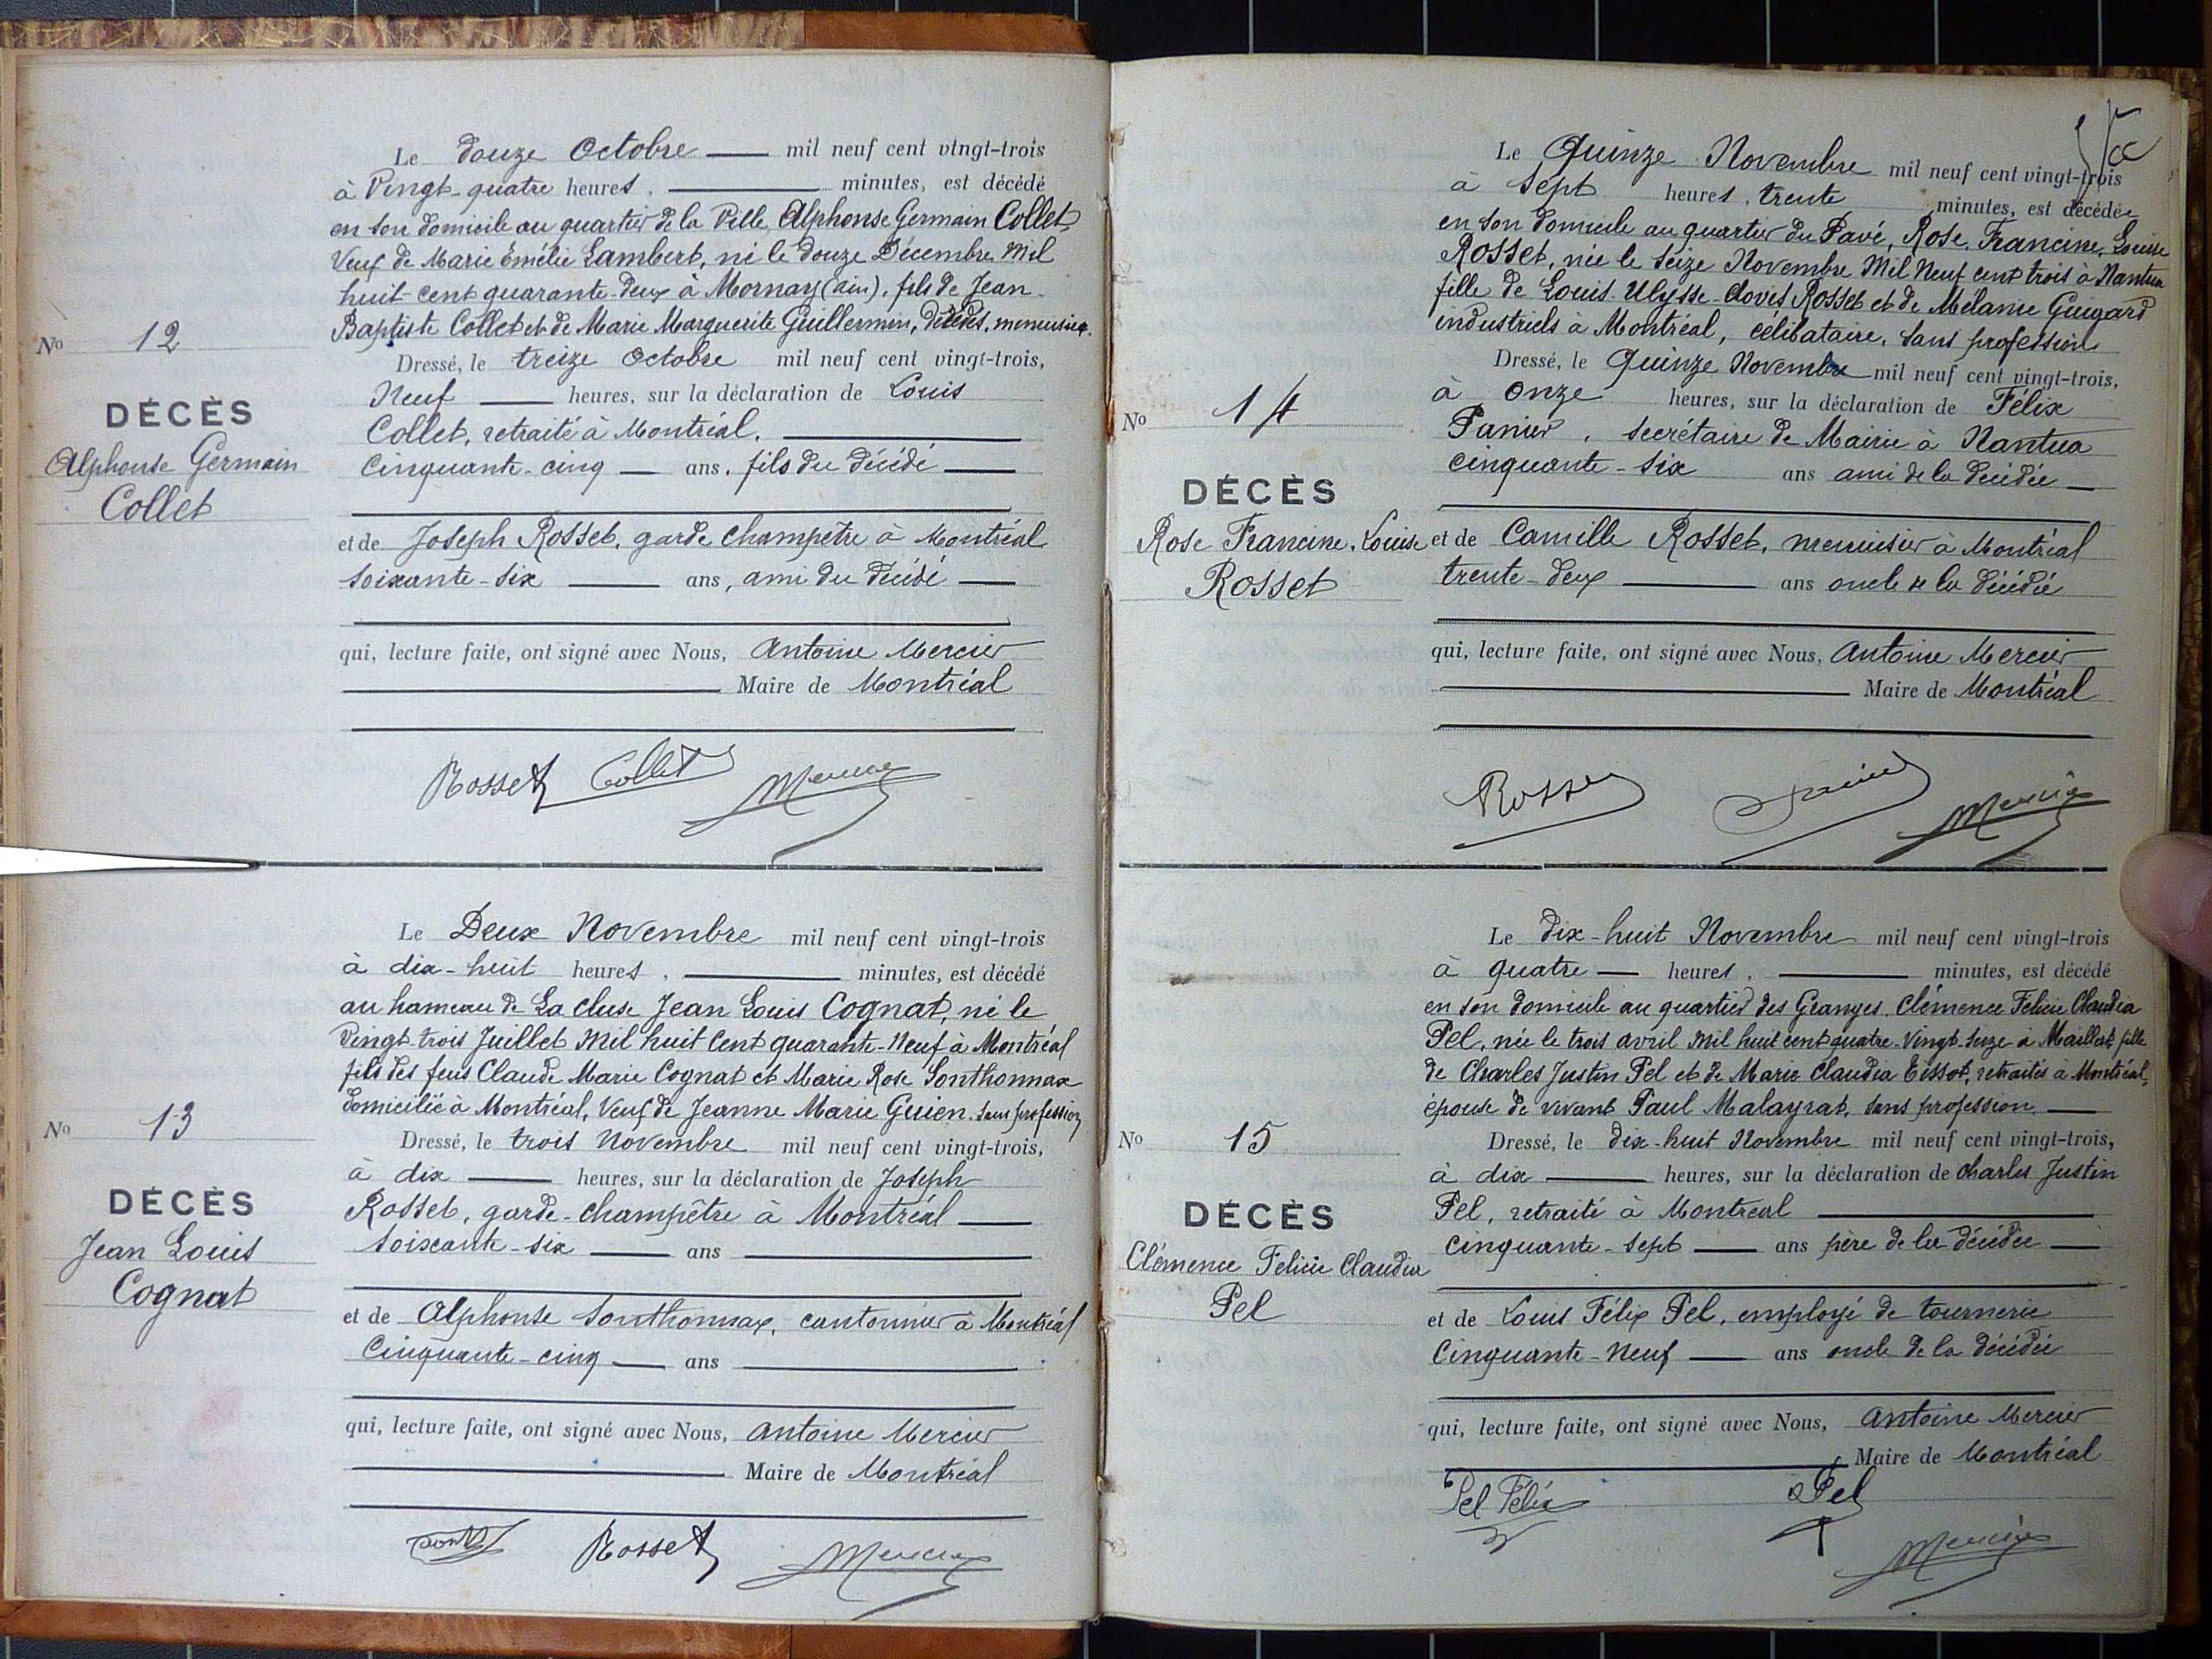 Le douze Octobre mil neuf cent vingt-trois
à Vingt-quatre heures, minutes, est décédé
en son domicile au quartier de la Ville, Alphonse Germain Collet,
Veuf de Marie Emélie Lambert, né le douze Décembre Mil
huit-cent quarante-deux à Mornay (Ain), fils de Jean
Baptiste Collet et de Marie Marguerite Guillermin, décédés, menuisier.
No 12
DÉCÈS
Alphonse Germain
Collet
Dressé, le treize Octobre mil neuf cent vingt-trois,
Neuf heures, sur la déclaration de Louis
Collet, retraité à Montréal,
cinquante-cinq ans, fils du décédé
et de Joseph Rosset, garde champêtre à Montréal
soixante-six ans, ami du décédé
qui, lecture faite, ont signé avec Nous, Antoine Mercier
Maire de Montréal
Rosset Collet Mercier
Le Deux Novembre mil neuf cent vingt-trois
à dix-huit heures, minutes, est décédé
au hameau de La Cluse Jean Louis Cognat, né le
Vingt-trois Juillet Mil huit Cent quarante-Neuf à Montréal
fils des feus Claude Marie Cognat et Marie Rose Sonthonnax
domicilié à Montréal, Veuf de Jeanne Marie Guien. sans profession
No 13
DÉCÈS
Jean Louis
Cognat
Dressé, le trois Novembre mil neuf cent vingt-trois,
à dix heures, sur la déclaration de Joseph
Rosset, garde-champêtre à Montréal
soixante-six ans
et de Alphonse Sonthonnax, cantonnier à Montréal
Cinquante-cinq ans
qui, lecture faite, ont signé avec Nous, Antoine Mercier
Maire de Montréal
Rosset Mercier
Le Quinze Novembre mil neuf cent vingt-trois
à sept heures, trente minutes, est décédée
en son domicile au quartier du Pavé, Rose, Francine, Louise
Rosset, née le seize Novembre Mil Neuf cent trois à Nantua
fille de Louis-Ulysse-Clovis Rosset et de Mélanie Guigard
industriels à Montréal, célibataire, sans profession
No 14
DÉCÈS
Rose Francine, Louise
Rosset
Dressé, le Quinze Novembre mil neuf cent vingt-trois,
à onze heures, sur la déclaration de Félix
Panier, secrétaire de Mairie à Nantua
cinquante-six ans ami de la décédée
et de Camille Rosset, menuisier à Montréal
trente-deux ans oncle de la décédée
qui, lecture faite, ont signé avec Nous, Antoine Mercier
Maire de Montréal
Rosset Mercier
Le dix-huit Novembre mil neuf cent vingt-trois
à quatre heures, minutes, est décédé
en son domicile au quartier des Granges, Clémence Félicie Claudia
Pel, née le trois avril Mil huit cent quatre-Vingt-seize à Maillat, fille
de Charles Justin Pel et de Marie Claudia Tissot, retraités à Montréal,
épouse de vivant Paul Malayrat, sans profession
No 15
DÉCÈS
Clémence Felicie Claudia
Pel
Dressé, le dix-huit Novembre mil neuf cent vingt-trois,
à dix heures, sur la déclaration de Charles Justin
Pel, retraité à Montreal
Cinquante-sept ans père de la décédée
et de Louis Félix Pel, employé de tournerie
Cinquante-Neuf ans oncle de la décédée
qui, lecture faite, ont signé avec Nous, Antoine Mercier
Maire de Montréal
Pel Félix Pel
Mercier